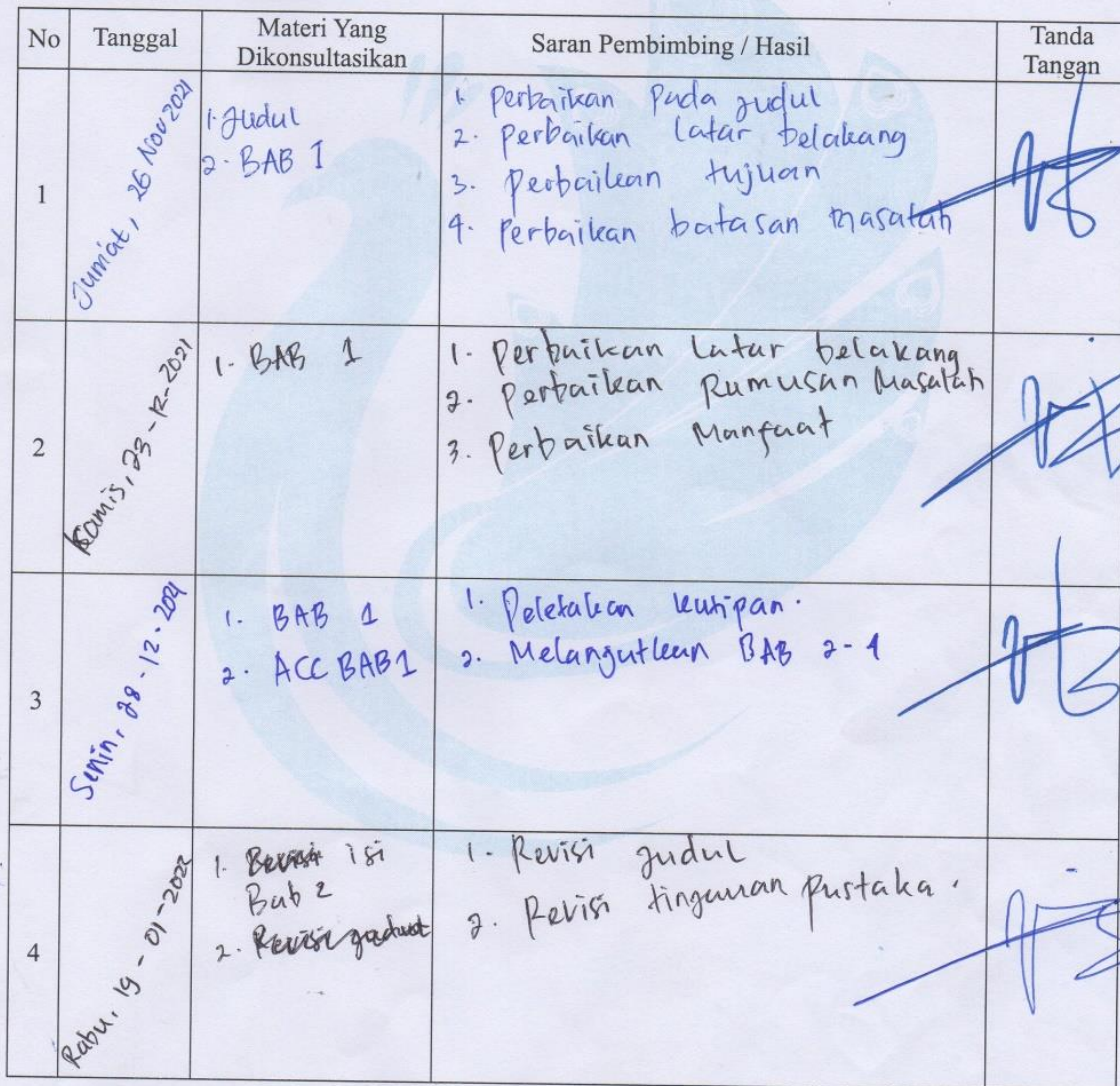 No Tanggal Materi Yang Dikonsultasikan Saran Pembimbing / Hasil Tanda Tangan
1
Jumiat, 26 Nov 2021
1. Judul
2. BAB I
1. Perbaikan pada judul
2. Perbaikan Latar belakang
3. Perbaikan tujuan
4. Perbaikan batasan masalah
2
Kamis, 23-12-2021
1. BAB 1
1. Perbaikan Latar belakang
2. Perbaikan Rumusan Masalah
3. Perbaikan Manfaat
3
Senin, 28-12-2021
1. BAB 1
2. ACC BAB 1
1. Peletakan kutipan.
2. Melangutkan BAB 2-4
4
Rabu, 19-01-2022
1. Revisi isi
Bab 2
2. Revisi judul
1. Revisi judul
2. Revisi tinjauan pustaka.